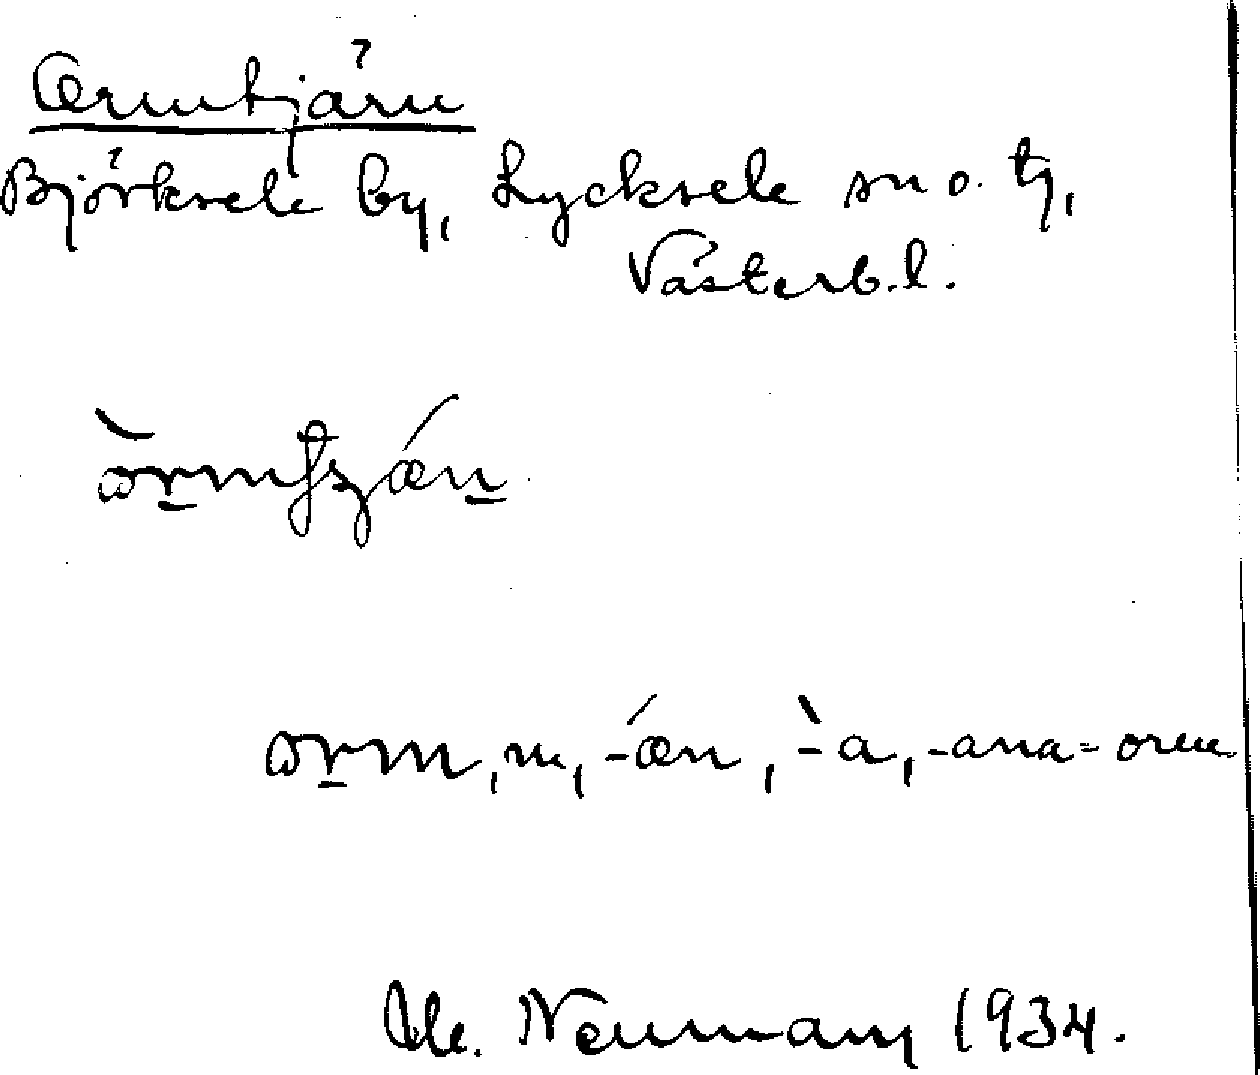 Ormtjärn
Björksele by, Lycksele sn o. tg,
Västerb.l.
orm, m, -æn, -a, -ana = orm
Neumann 1934.